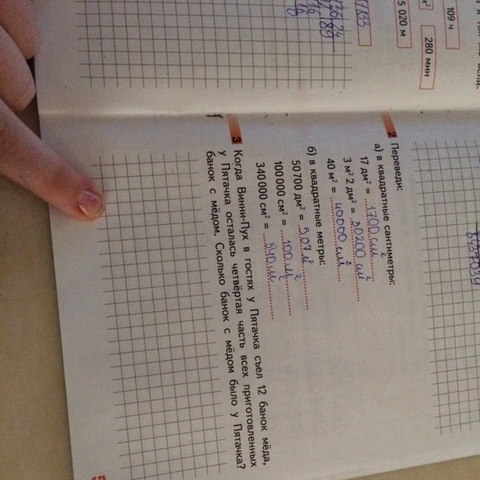 109 ч
280 мин
5 020 м
2 Переведи:
а) в квадратные сантиметры:
17 дм² = 1700 см²
3 м² 2 дм² = 30200 см²
40 м² = 40000 см²
б) в квадратные метры:
50 700 дм² = 507 м²
100 000 см² = 100 м²
340 000 см² = 340 м²
3 Когда Винни-Пух в гостях у Пятачка съел 12 банок мёда,
у Пятачка осталась четвёртая часть всех приготовленных
банок с мёдом. Сколько банок с мёдом было у Пятачка?